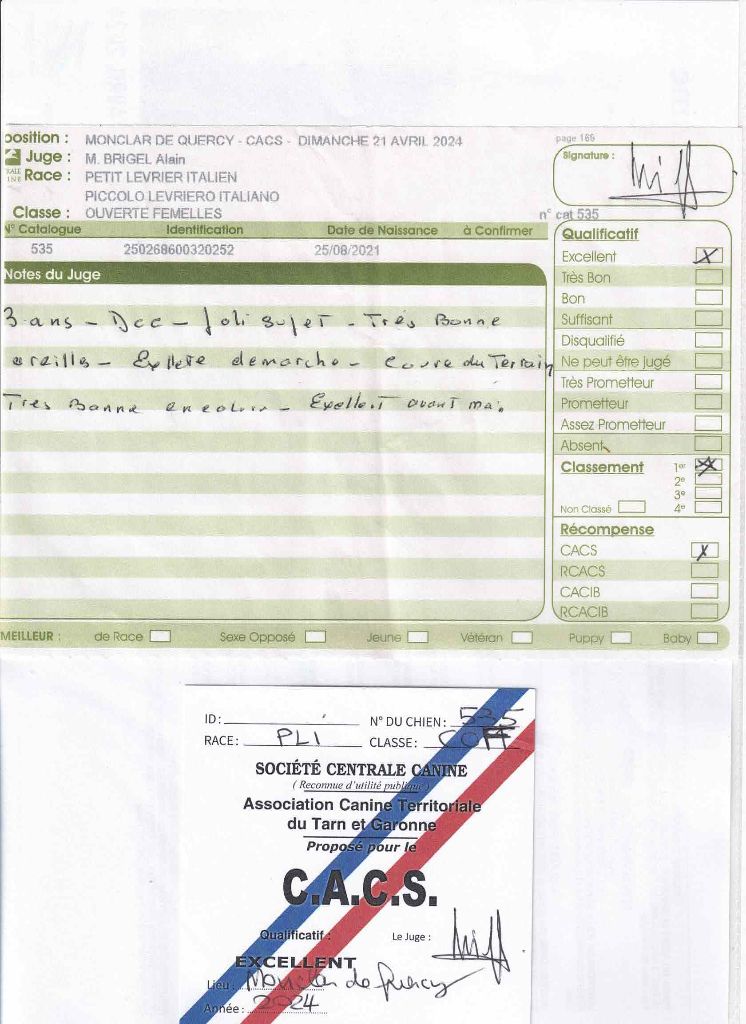 position : MONCLAR DE QUERCY - CACS - DIMANCHE 21 AVRIL 2024
page 165
Juge : M. BRIGEL Alain
Signature :
Race : PETIT LEVRIER ITALIEN
PICCOLO LEVRIERO ITALIANO
Classe : OUVERTE FEMELLES
n° cat 535
N° Catalogue Identification Date de Naissance à Confirmer
535 250268600320252 25/08/2021
Notes du Juge
3 ans - Dcc - Joli sujet - Très Bonne
oreille - Exllete demarche - couvre du Terrain
Tres Bonne encolure - Exellent avant mai
Qualificatif
Excellent X
Très Bon
Bon
Suffisant
Disqualifié
Ne peut être jugé
Très Prometteur
Prometteur
Assez Prometteur
Absent
Classement 1er X
2e
3e
Non Classé 4e
Récompense
CACS X
RCACS
CACIB
RCACIB
MEILLEUR : de Race Sexe Opposé Jeune Vétéran Puppy Baby
ID : N° DU CHIEN : 535
RACE : PLI CLASSE :
SOCIÉTÉ CENTRALE CANINE
( Reconnue d'utilité publique )
Association Canine Territoriale
du Tarn et Garonne
Proposé pour le
C.A.C.S.
Qualificatif : Le Juge :
EXCELLENT
Lieu : Monclar de Quercy
Année : 2024